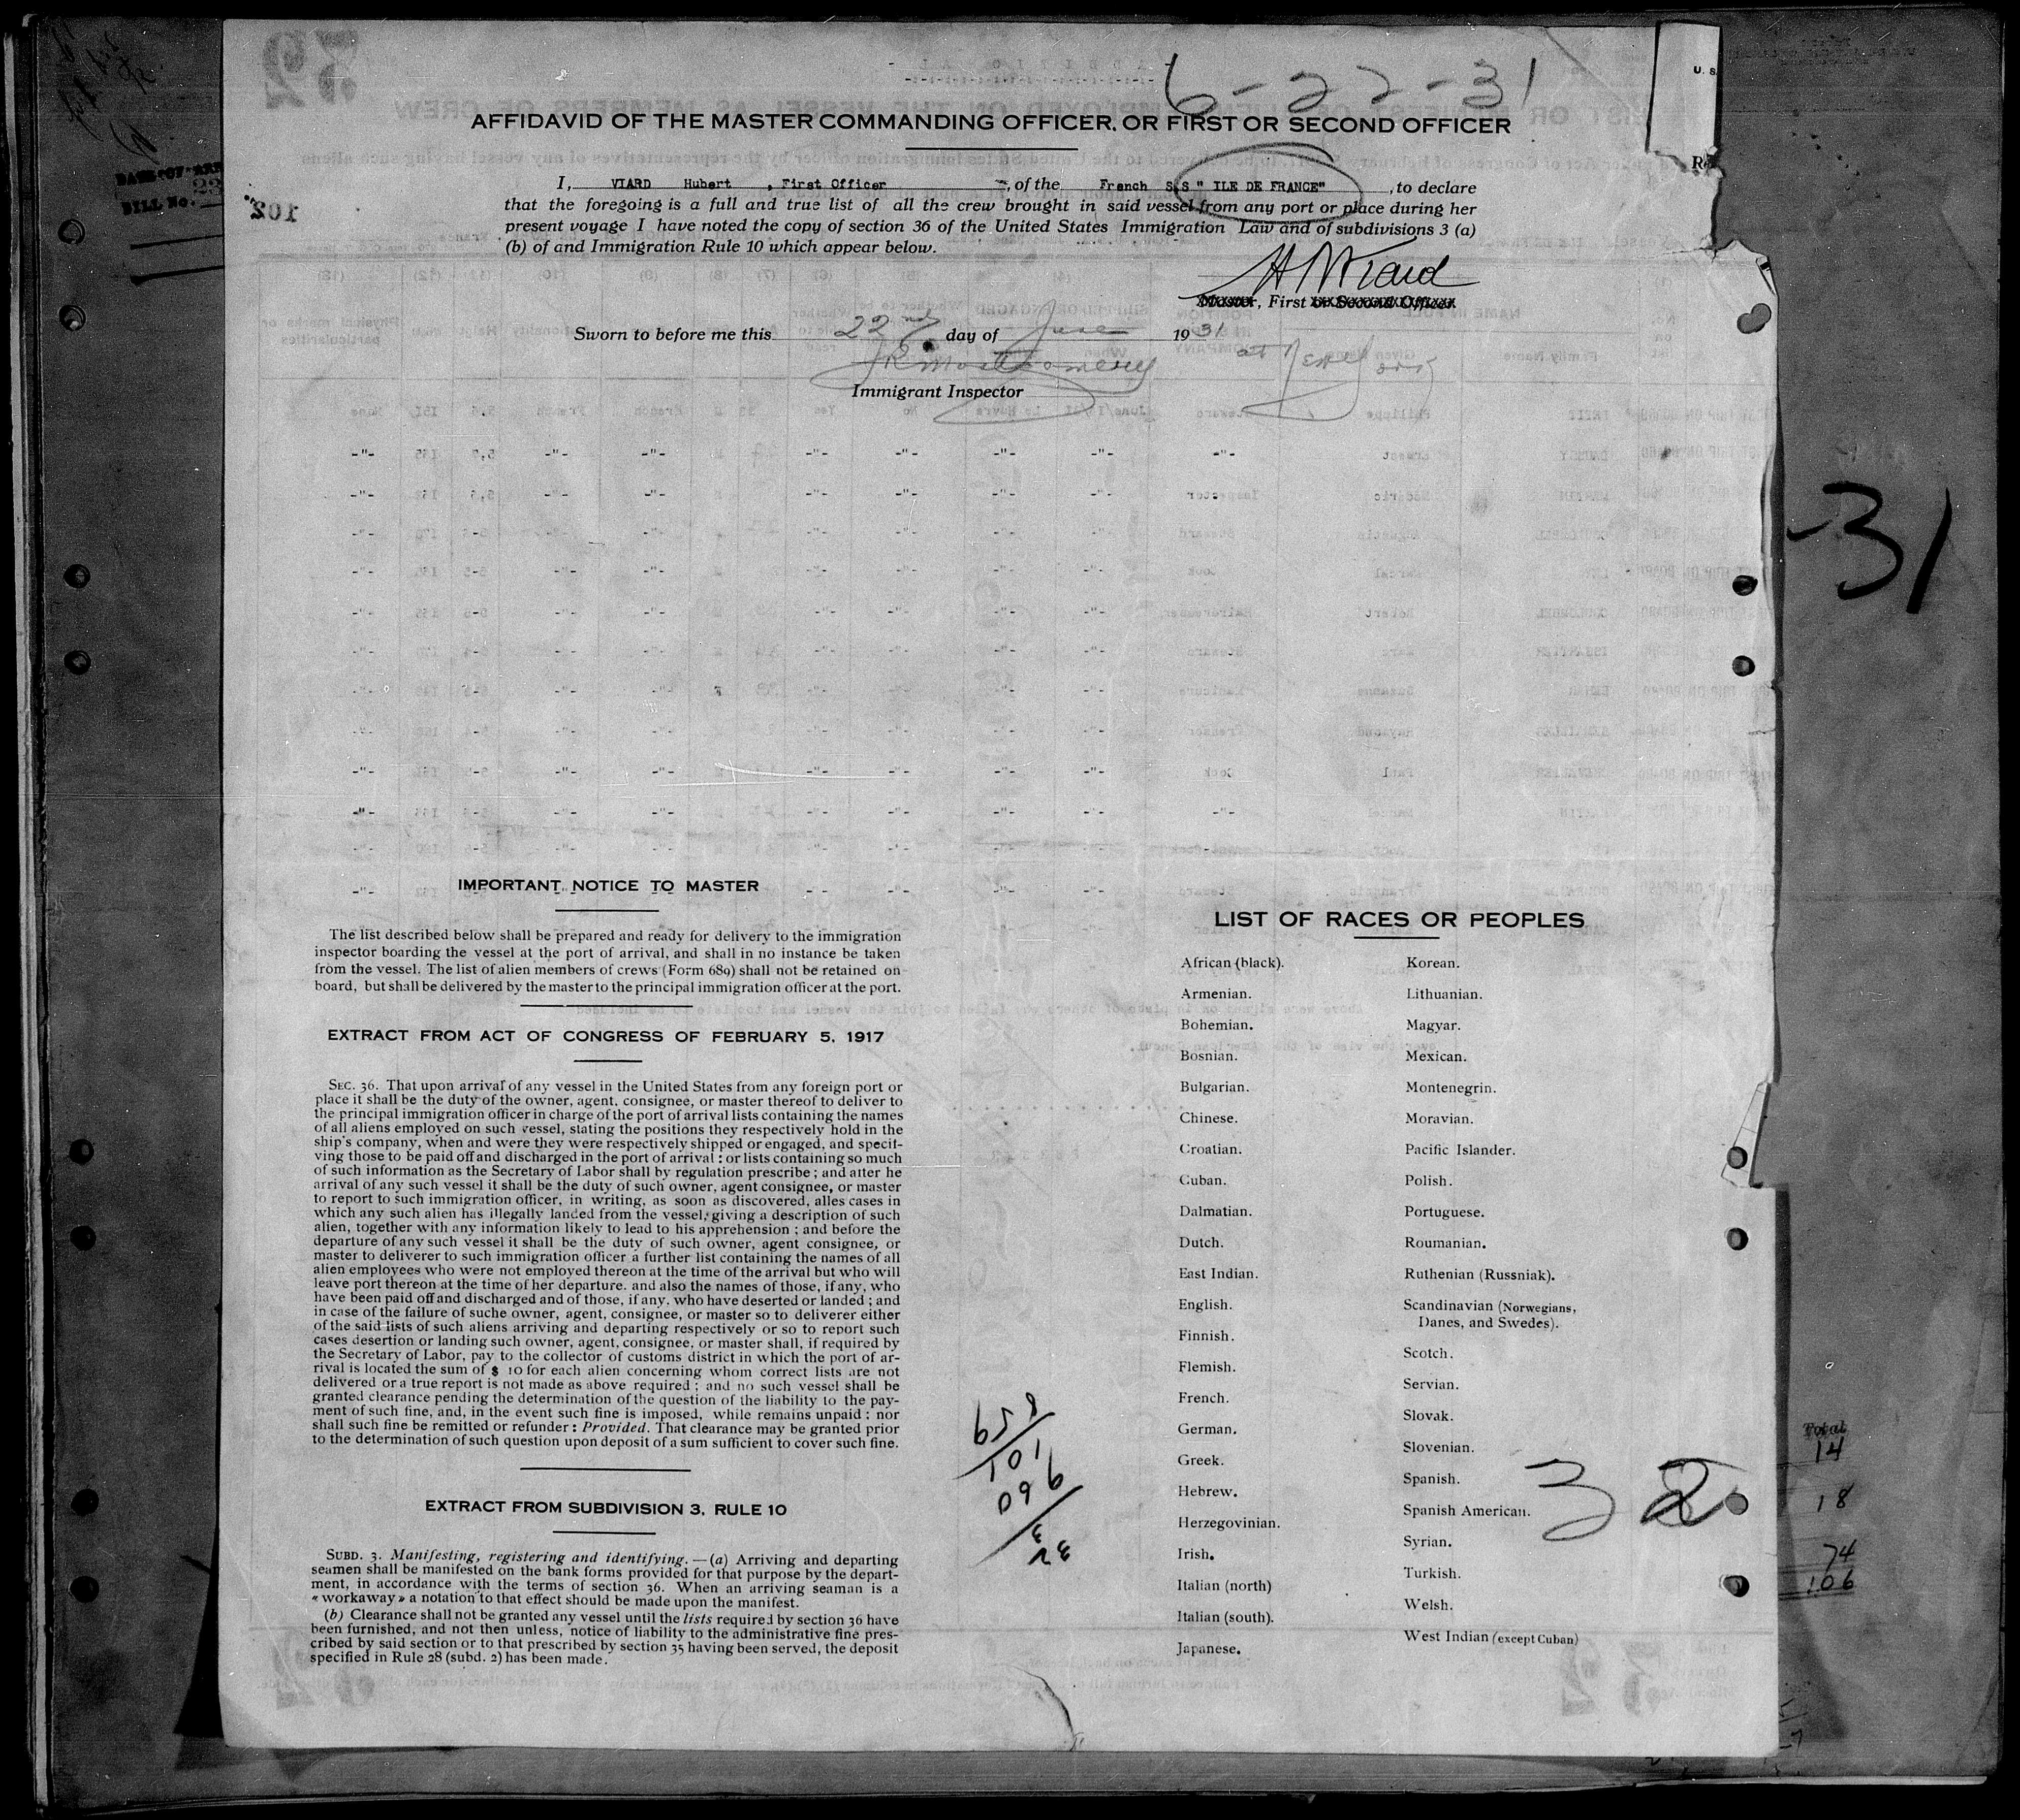 6-22-31
AFFIDAVID OF THE MASTER COMMANDING OFFICER, OR FIRST OR SECOND OFFICER
I, VIARD Hubert , First Officer , of the French S/S " ILE DE FRANCE" , to declare
that the foregoing is a full and true list of all the crew brought in said vessel from any port or place during her
present voyage I have noted the copy of section 36 of the United States Immigration Law and of subdivisions 3 (a)
(b) of and Immigration Rule 10 which appear below.
H Viard
Master, First or Second Officer
Sworn to before me this 22nd day of June 1931
Immigrant Inspector
IMPORTANT NOTICE TO MASTER
The list described below shall be prepared and ready for delivery to the immigration
inspector boarding the vessel at the port of arrival, and shall in no instance be taken
from the vessel. The list of alien members of crews (Form 689) shall not be retained on
board, but shall be delivered by the master to the principal immigration officer at the port.
EXTRACT FROM ACT OF CONGRESS OF FEBRUARY 5, 1917
SEC. 36. That upon arrival of any vessel in the United States from any foreign port or
place it shall be the duty of the owner, agent, consignee, or master thereof to deliver to
the principal immigration officer in charge of the port of arrival lists containing the names
of all aliens employed on such vessel, stating the positions they respectively hold in the
ship's company, when and were they were respectively shipped or engaged, and specif-
ving those to be paid off and discharged in the port of arrival : or lists containing so much
of such information as the Secretary of Labor shall by regulation prescribe ; and atter he
arrival of any such vessel it shall be the duty of such owner, agent consignee, or master
to report to such immigration officer, in writing, as soon as discovered, alles cases in
which any such alien has illegally landed from the vessel, giving a description of such
alien, together with any information likely to lead to his apprehension ; and before the
departure of any such vessel it shall be the duty of such owner, agent consignee, or
master to deliverer to such immigration officer a further list containing the names of all
alien employees who were not employed thereon at the time of the arrival but who will
leave port thereon at the time of her departure. and also the names of those, if any, who
have been paid off and discharged and of those, if any. who have deserted or landed ; and
in case of the failure of suche owner, agent, consignee, or master so to deliverer either
of the said lists of such aliens arriving and departing respectively or so to report such
cases desertion or landing such owner, agent, consignee, or master shall, if required by
the Secretary of Labor, pay to the collector of customs district in which the port of ar-
rival is located the sum of $ 10 for each alien concerning whom correct lists are not
delivered or a true report is not made as above required ; and no such vessel shall be
granted clearance pending the determination of the question of the liability to the pay-
ment of such fine, and, in the event such fine is imposed, while remains unpaid ; nor
shall such fine be remitted or refunder : Provided. That clearance may be granted prior
to the determination of such question upon deposit of a sum sufficient to cover such fine.
EXTRACT FROM SUBDIVISION 3, RULE 10
SUBD. 3. Manifesting, registering and identifying. — (a) Arriving and departing
seamen shall be manifested on the bank forms provided for that purpose by the depart-
ment, in accordance with the terms of section 36. When an arriving seaman is a
« workaway » a notation to that effect should be made upon the manifest.
(b) Clearance shall not be granted any vessel until the lists required by section 36 have
been furnished, and not then unless, notice of liability to the administrative fine pres-
cribed by said section or to that prescribed by section 35 having been served, the deposit
specified in Rule 28 (subd. 2) has been made.
LIST OF RACES OR PEOPLES
African (black).
Armenian.
Bohemian.
Bosnian.
Bulgarian.
Chinese.
Croatian.
Cuban.
Dalmatian.
Dutch.
East Indian.
English.
Finnish.
Flemish.
French.
German.
Greek.
Hebrew.
Herzegovinian.
Irish.
Italian (north)
Italian (south).
Japanese.
Korean.
Lithuanian.
Magyar.
Mexican.
Montenegrin.
Moravian.
Pacific Islander.
Polish.
Portuguese.
Roumanian.
Ruthenian (Russniak).
Scandinavian (Norwegians,
Danes, and Swedes).
Scotch.
Servian.
Slovak.
Slovenian.
Spanish.
Spanish American.
Syrian.
Turkish.
Welsh.
West Indian (except Cuban)
32
-31
Total
14
18
74
106